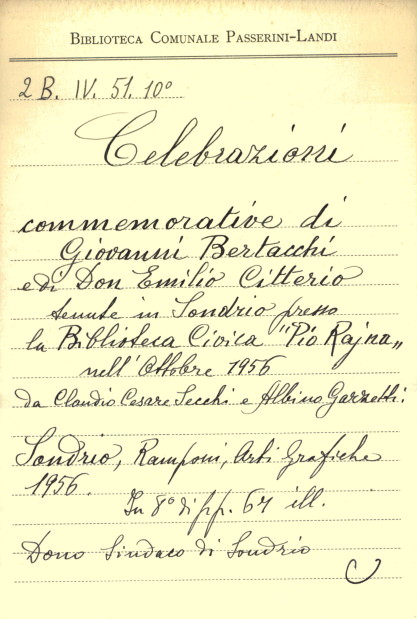 BIBLIOTECA COMUNALE PASSERINI-LANDI
2 B. IV. 51. 10º
Celebrazioni
commemorative di
Giovanni Bertacchi
e di Don Emilio Citterio
tenute in Sondrio presso
la Biblioteca Civica "Pio Rajna„
nell'Ottobre 1956
da Claudio Cesare Secchi e Albino Garzetti.
Sondrio, Ramponi, Arti Grafiche
1956.
In 8º di pp. 67 ill.
Dono Sindaco di Sondrio